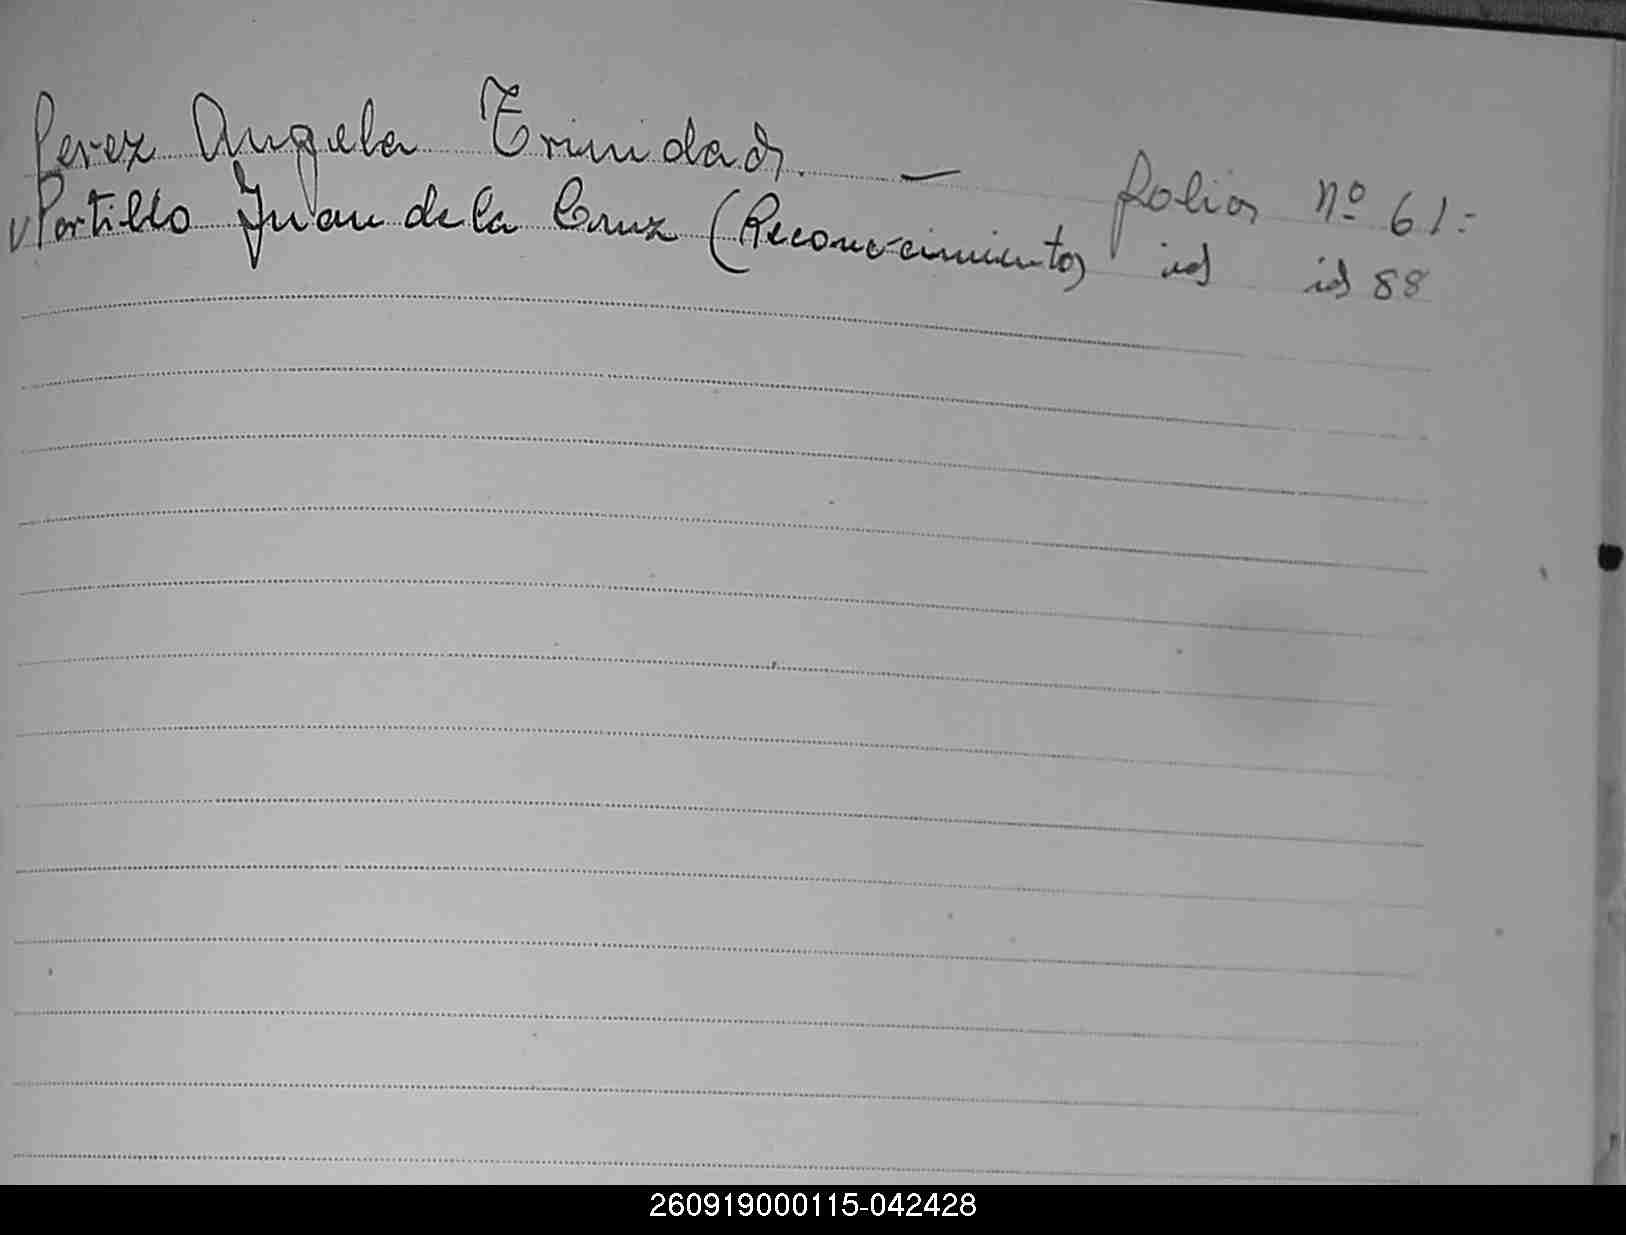 Perez Angela Trinidad. — folio nº 61 =
Portillo Juan de la Cruz (Reconocimiento) id id 88
260919000115-042428